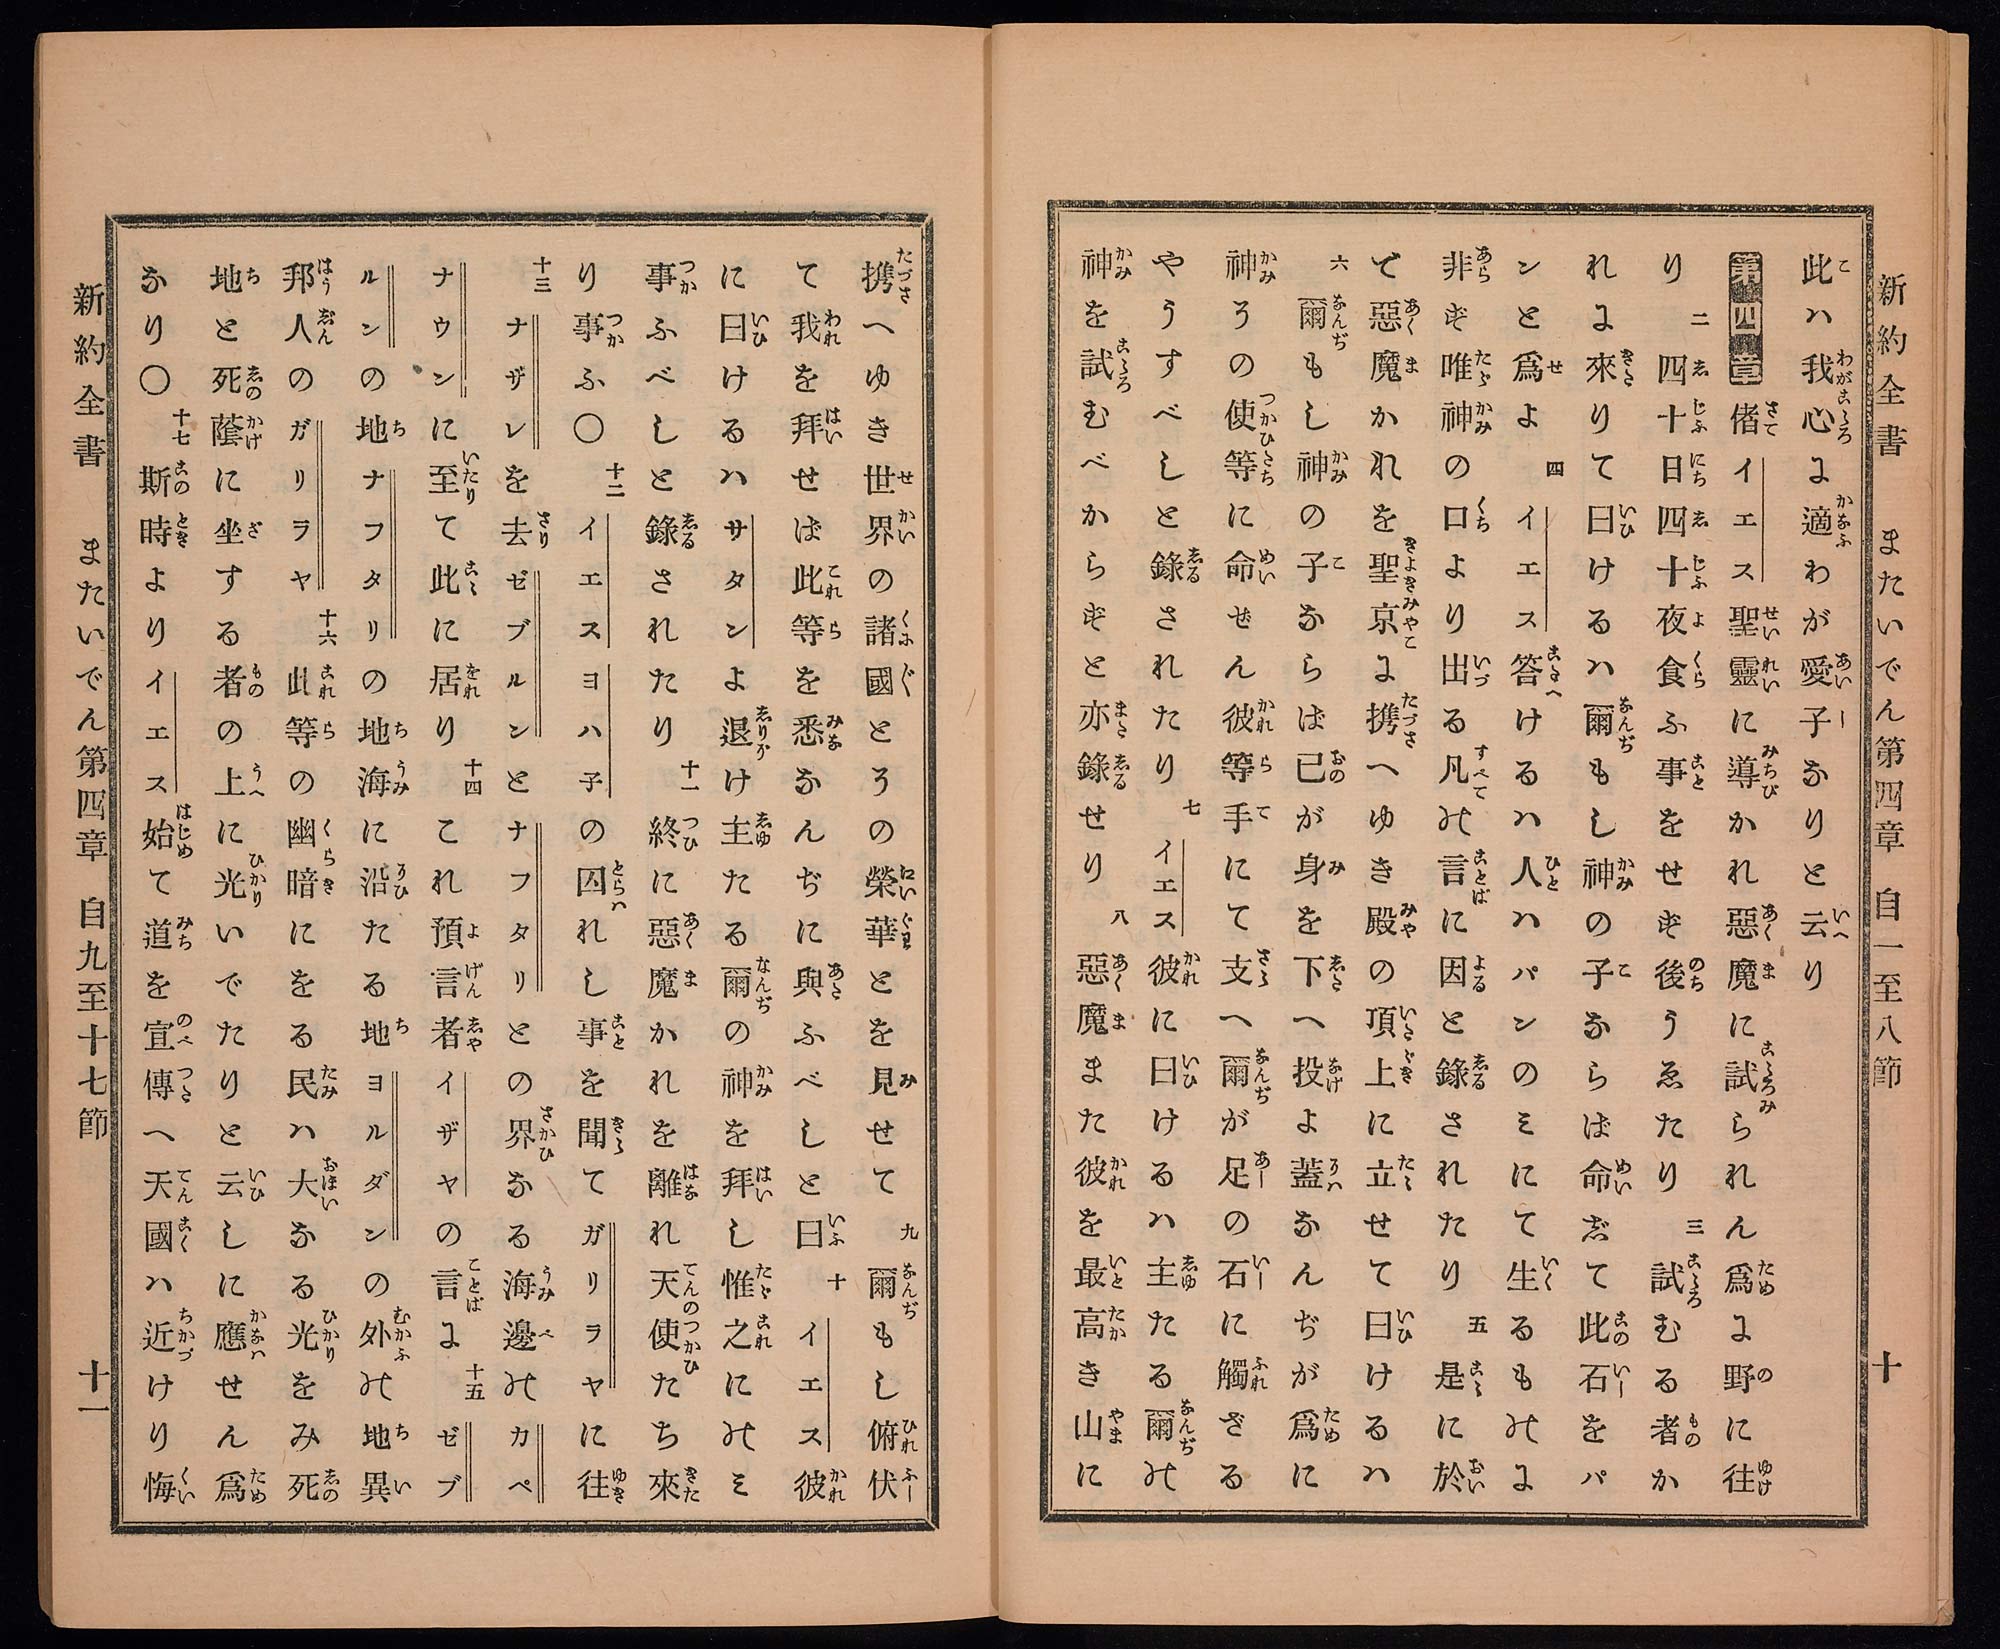 新約全書　またいでん第四章　自一至八節　十
此ハ我心に適わが愛子なりと云り
第四章 偖イエス聖靈に導かれ惡魔に試られん爲に野に往
り 二 四十日四十夜食ふ事をせず後うゑたり 三 試むる者か
れに來りて曰けるハ爾もし神の子ならば命じて此石をパ
ンと爲よ 四 イエス答けるハ人ハパンのミにて生るものに
非ず唯神の口より出る凡の言に因と錄されたり 五 是に於
て惡魔かれを聖京に携へゆき殿の頂上に立せて曰けるハ
六 爾もし神の子ならば己が身を下へ投よ蓋なんぢが爲に
神その使等に命ぜん彼等手にて支へ爾が足の石に觸ざる
やうすべしと錄されたり 七 イエス彼に曰けるハ主たる爾の
神を試むべからずと亦錄せり 八 惡魔また彼を最高き山に
携へゆき世界の諸國とその榮華とを見せて 九 爾もし俯伏
て我を拜せば此等を悉なんぢに與ふべしと曰 十 イエス彼
に曰けるハサタンよ退け主たる爾の神を拜し惟之にのミ
事ふべしと錄されたり 十一 終に惡魔かれを離れ天使たち來
り事ふ〇 十二 イエスヨハ子の囚れし事を聞てガリラヤに往
十三 ナザレを去ゼブルンとナフタリとの界なる海邊のカペ
ナウンに至て此に居り 十四 これ預言者イザヤの言に 十五 ゼブ
ルンの地ナフタリの地海に沿たる地ヨルダンの外の地異
邦人のガリラヤ 十六 此等の幽暗にをる民ハ大なる光をみ死
地と死蔭に坐する者の上に光いでたりと云しに應せん爲
なり〇 十七 斯時よりイエス始て道を宣傳へ天國ハ近けり悔
新約全書　またいでん第四章　自九至十七節　十一